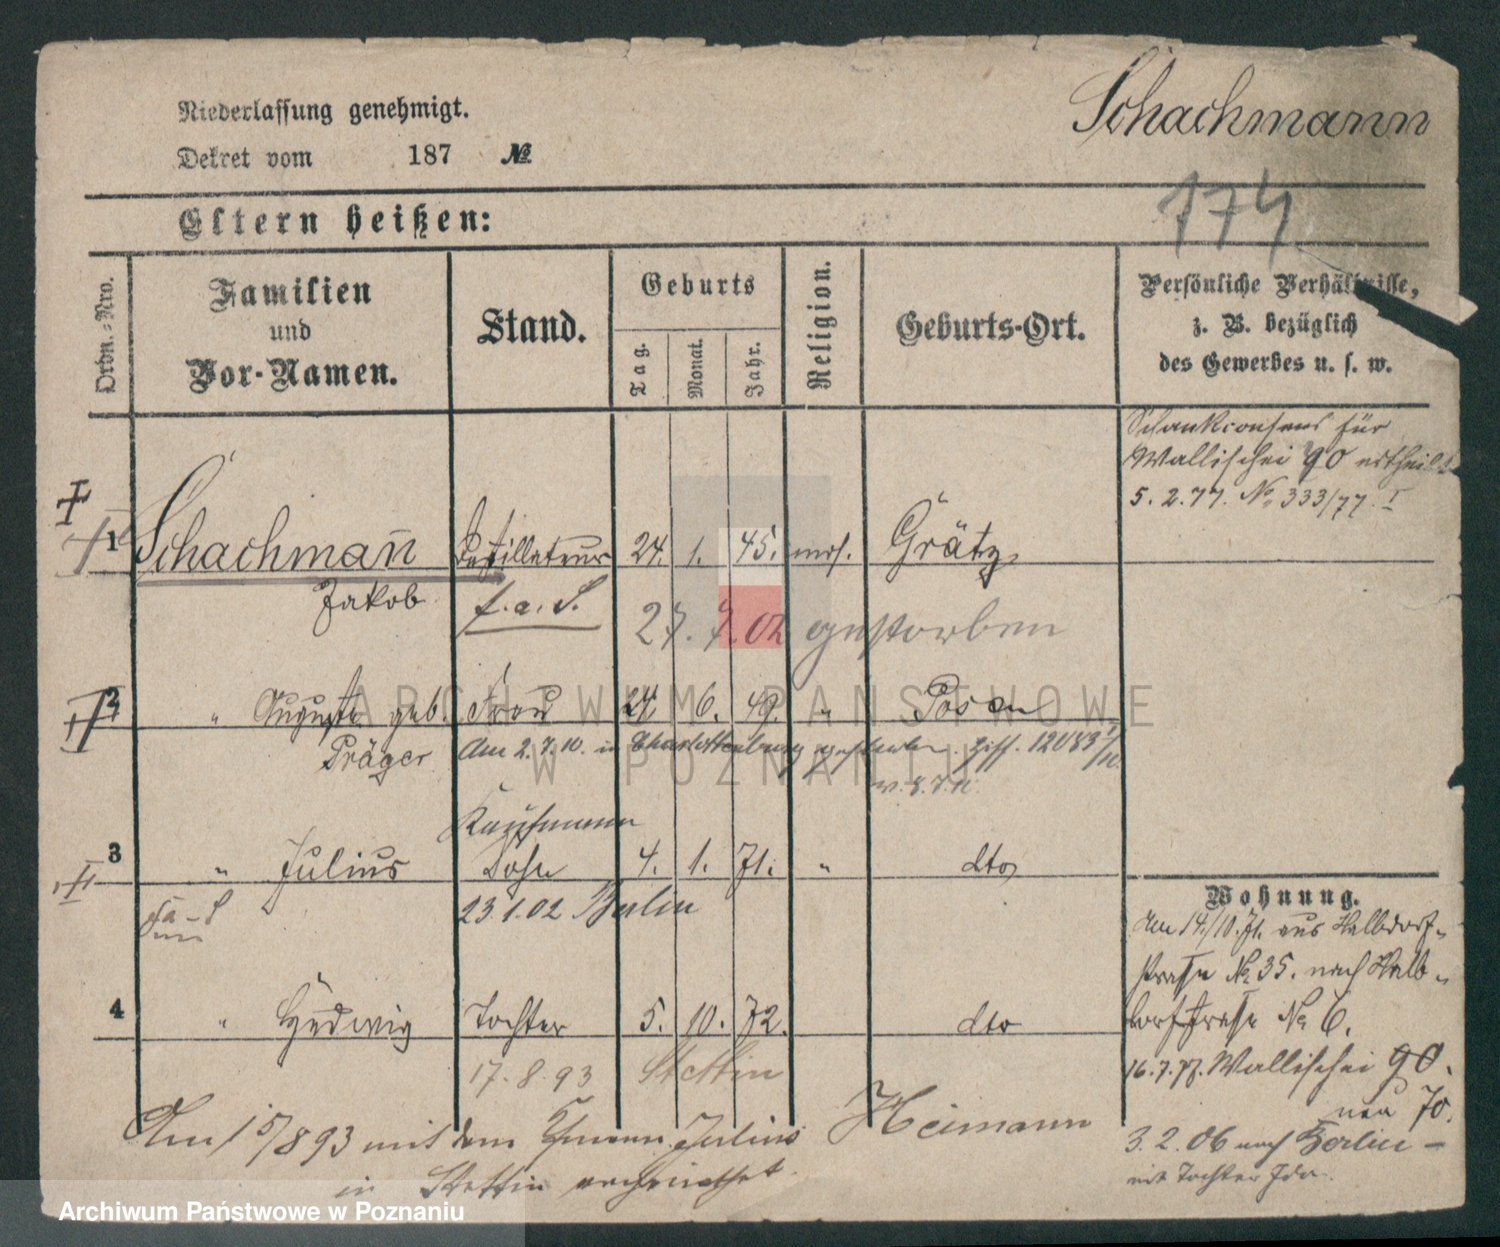 Schachmann
Niederlassung genehmigt.
Dekret vom 187 №
174
Eltern heißen:
Ordn.-Nro.
Familien
und
Vor-Namen.
Stand.
Geburts
Tag.
Monat.
Jahr.
Religion.
Geburts-Ort.
Persönliche Verhältnisse,
z. B. bezüglich
des Gewerbes u. s. w.
Schankconsens für
Wallischei 90 ertheilt
5. 2. 77. No 333/77. I
1 Schachmann̄ Destillateur 24. 1. 45. mos. Grätz
Jakob f. a. S.
27. 7. 02 gestorben
2 " Auguste geb. Frau 24. 6. 49. " Posen
Präger Am 2. 7. 10. in Charlottenburg gestorben. 12083
Kaufmann
3 " Julius Sohn 4. 1. 71. " dto
23. 1. 02 Berlin
4 " Hedwig Tochter 5. 10. 72. dto
17. 8. 93 Stettin
Am 15/8 93 mit dem Julius Heimann
in Stettin verheirathet.
Wohnung.
Am 14./10. 71. aus Halbdorf-
strasse No 35. nach Halb-
dorfstrasse No 6.
16. 7. 77. Wallischei 90.
neu 70.
3. 2. 06 nach Berlin -
mit Tochter Ida.
ARCHIWUM PAŃSTWOWE
W POZNANIU
Archiwum Państwowe w Poznaniu